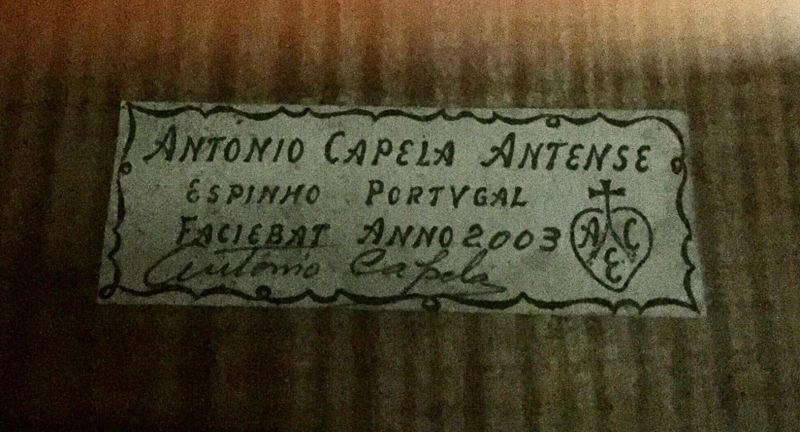 ANTÓNIO CAPELA ANTENSE
ESPINHO PORTVGAL
FACIEBAT ANNO 2003
António Capela
A C
E